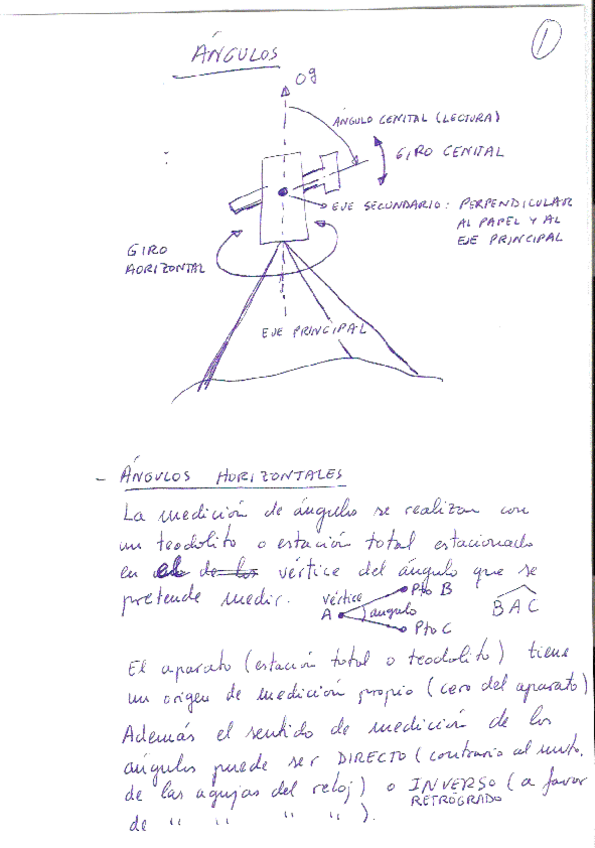 1
ÁNGULOS
0g
ÁNGULO CENITAL (LECTURA)
GIRO CENITAL
EJE SECUNDARIO: PERPENDICULAR
AL PAPEL Y AL
EJE PRINCIPAL
GIRO
HORIZONTAL
EJE PRINCIPAL
- ÁNGULOS HORIZONTALES
La medición de ángulos se realizan con
un teodolito o estación total estacionado
en el de los vértice del ángulo que se
pretende medir.
vértice
A
ángulo
Pto B
Pto C
BAC
El aparato (estación total o teodolito) tiene
un origen de medición propio (cero del aparato)
Además el sentido de medición de los
ángulos puede ser DIRECTO (contrario al mvto.
de las agujas del reloj) o INVERSO (a favor
RETRÓGRADO
de " " " ").